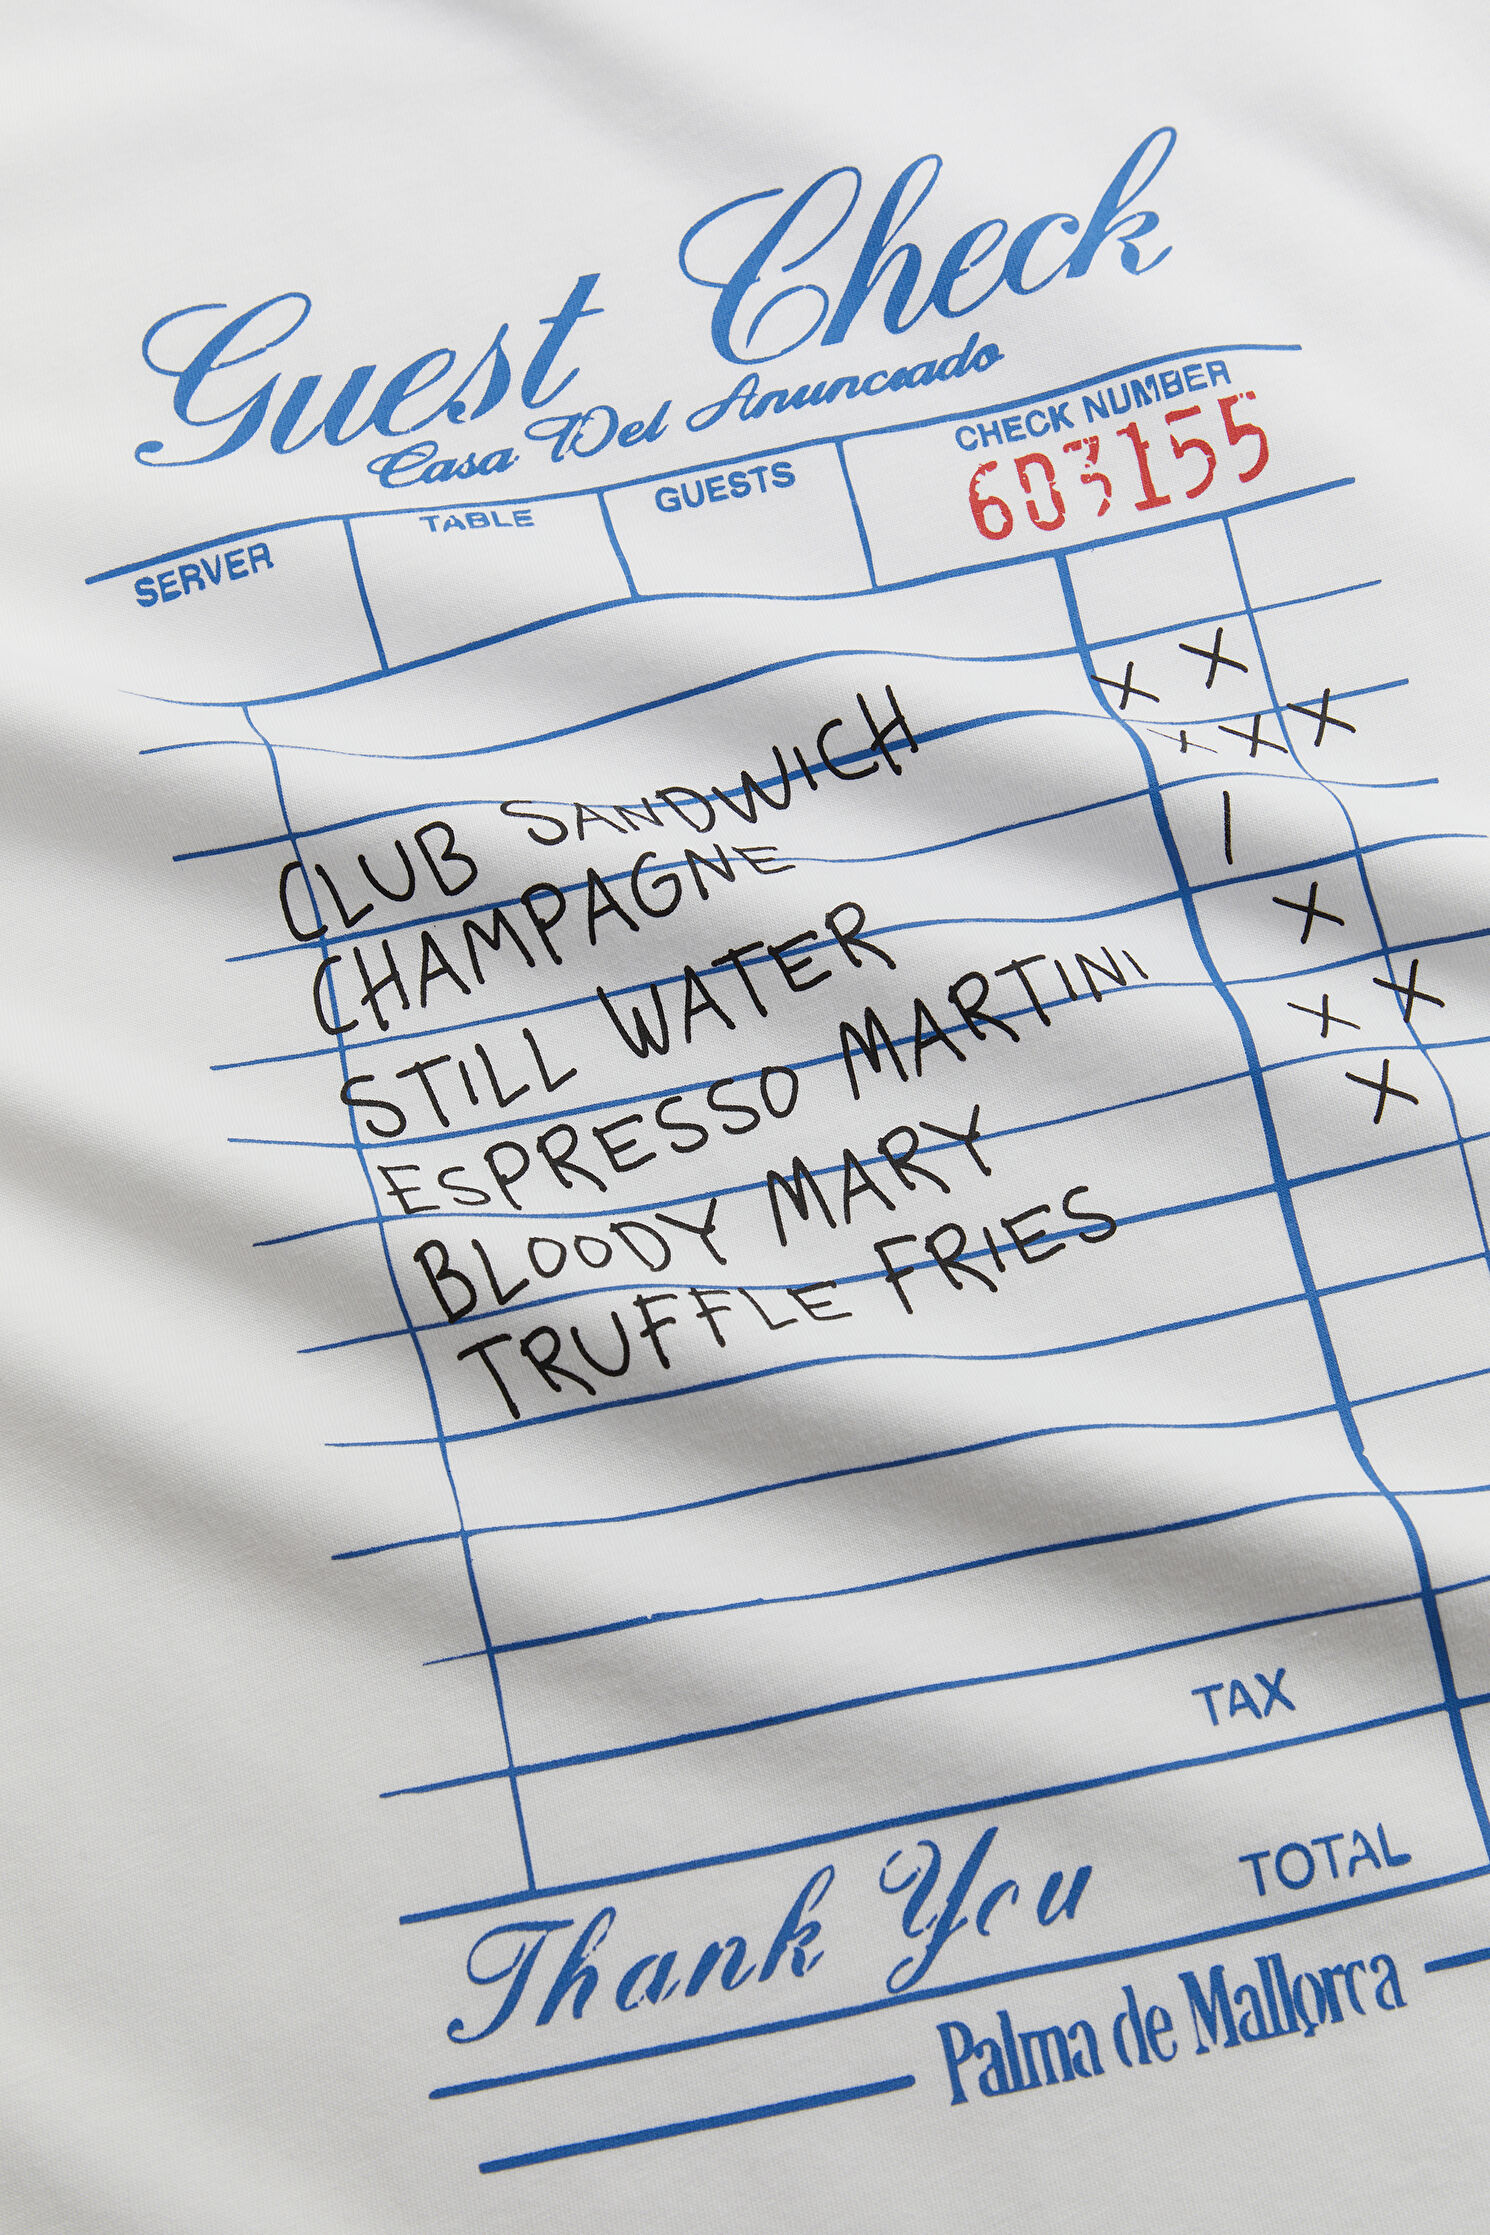 Guest Check
Casa Del Anunciado
SERVER TABLE GUESTS CHECK NUMBER
603155
CLUB SANDWICH X X
CHAMPAGNE X X X
STILL WATER /
ESPRESSO MARTINI X
BLOODY MARY X X
TRUFFLE FRIES X
TAX
Thank You TOTAL
Palma de Mallorca